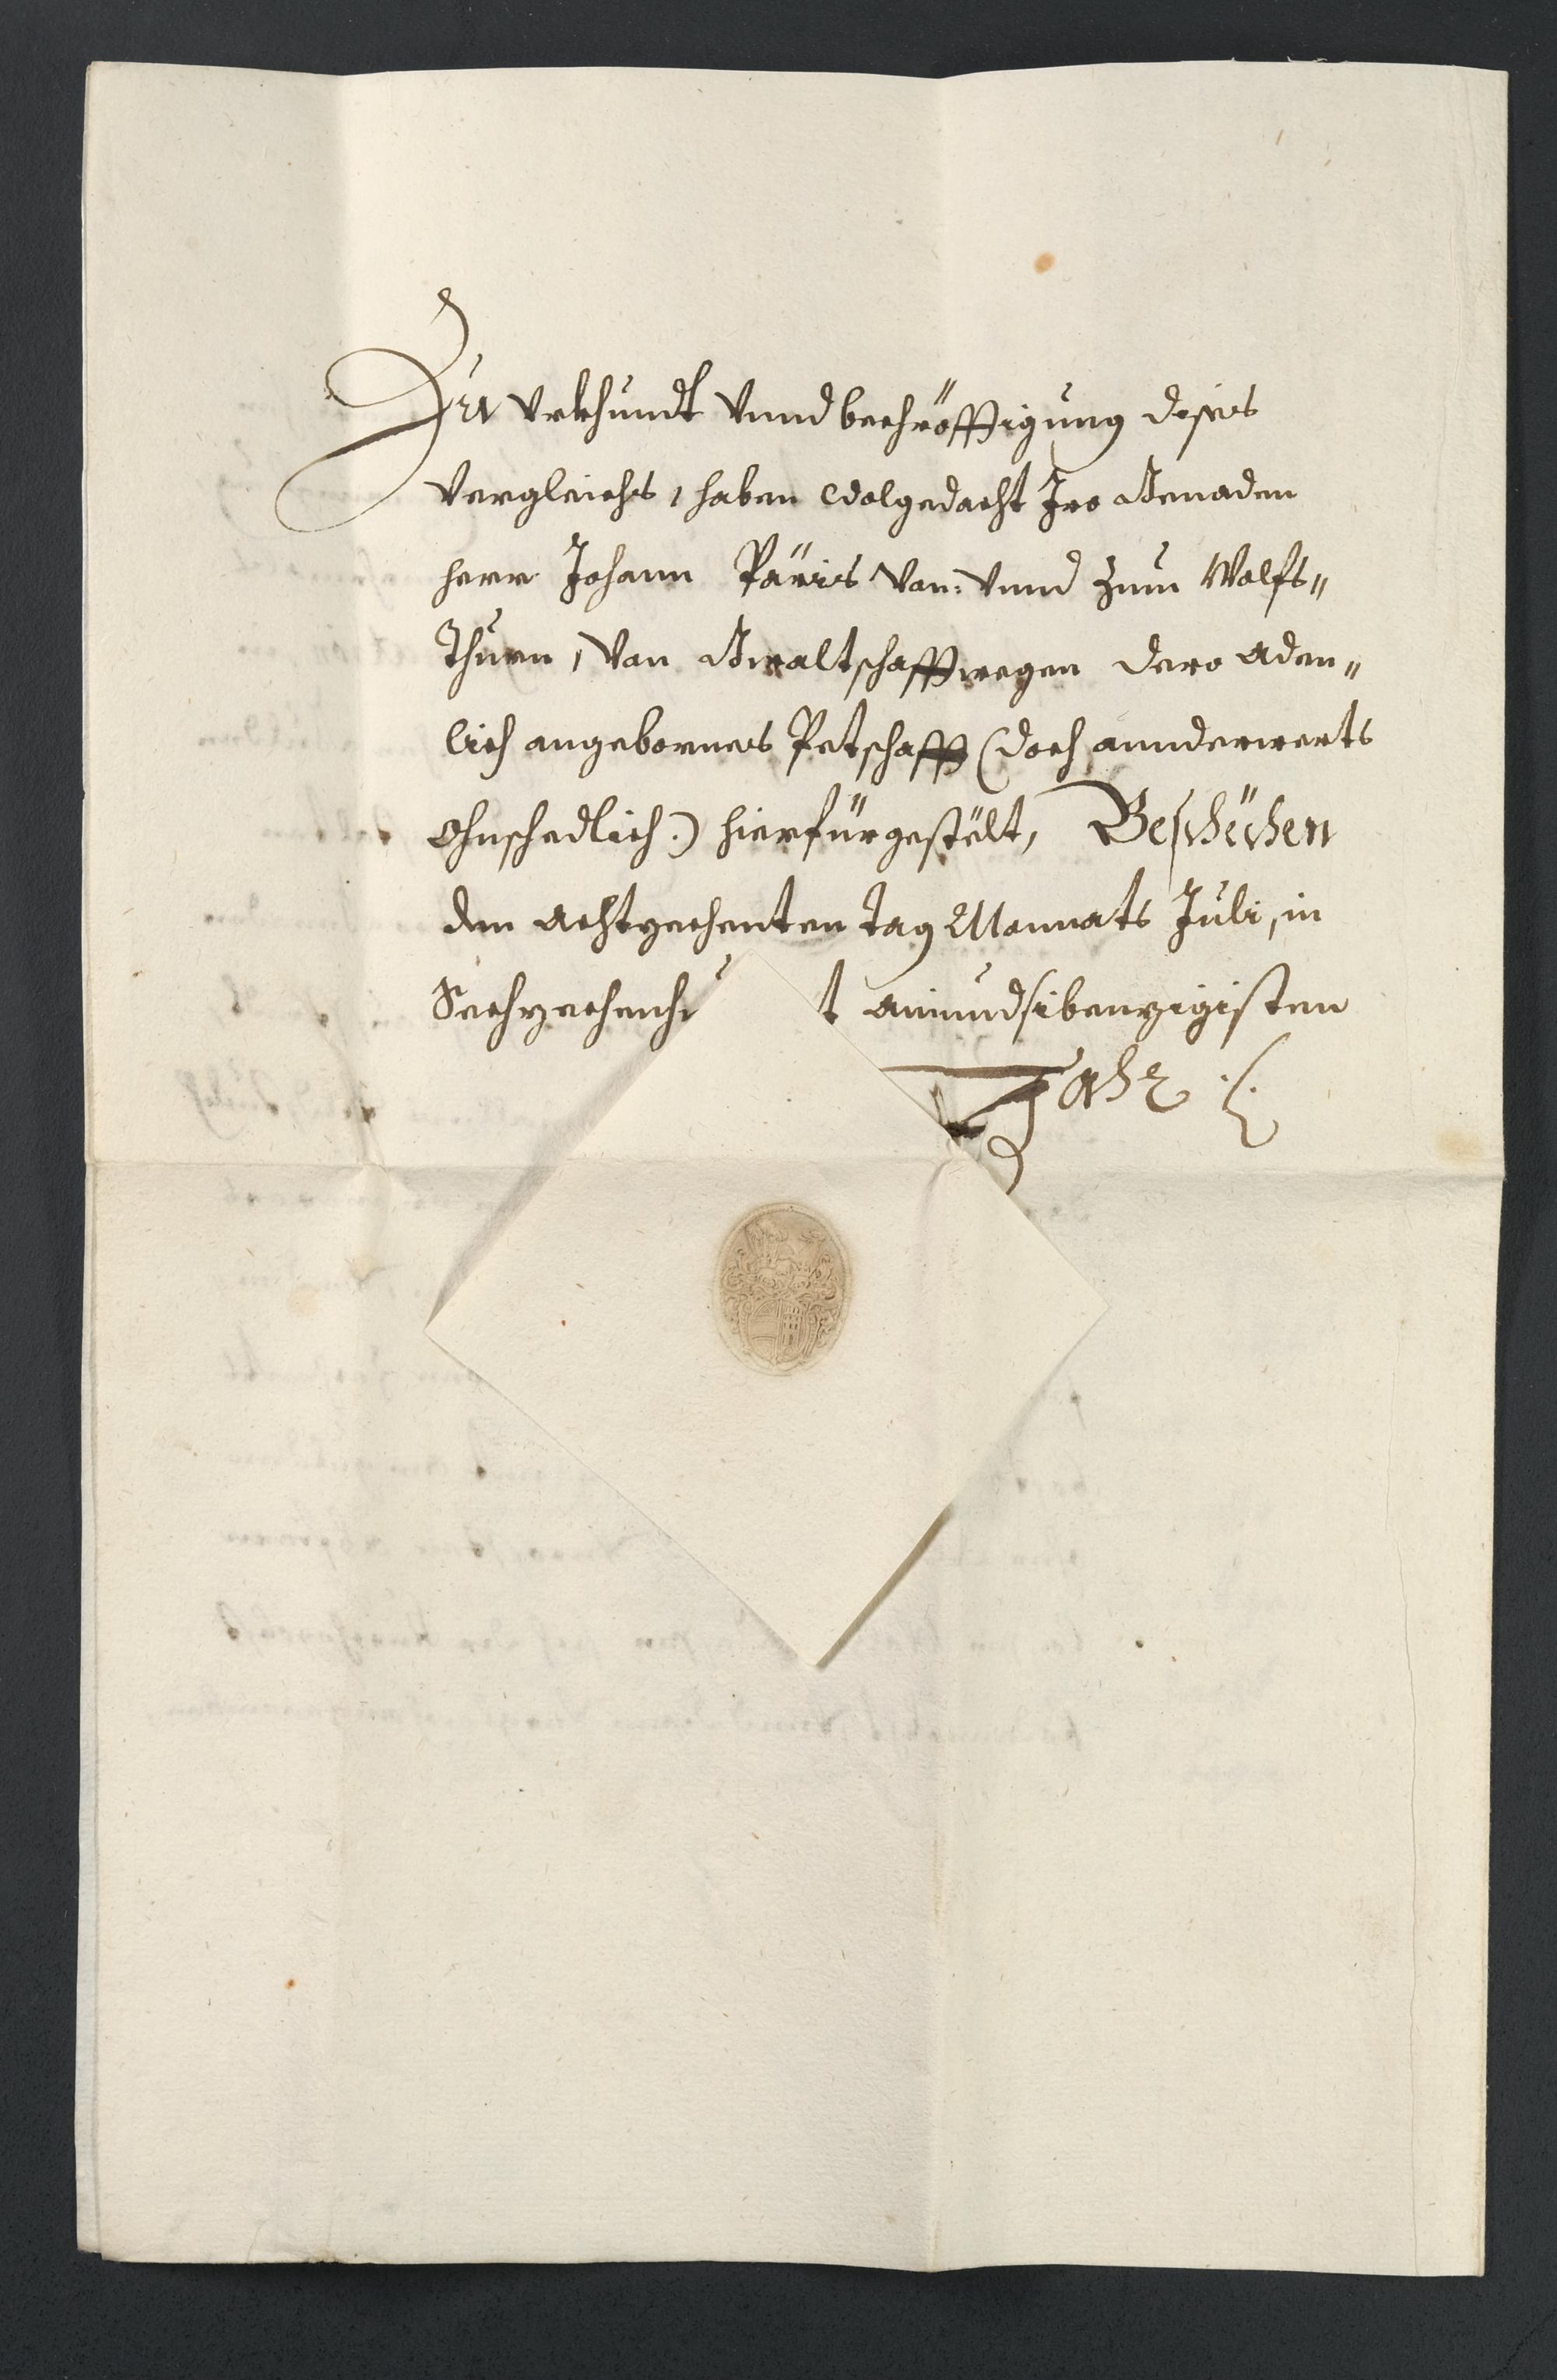 Zu Urkhundt Unnd bechröfftigung deses
Vergleichs, haben Wolgedacht Iro Genaden
herr Johann Päris Von: Vnnd zum Wolfs„
Thurn, Von Gwaltschafftwegen dero aden„
lich angebornes Petschafft (doch annderwerts
ohnschedlich.) hierfür gestölt, Beschëchen
den achtzechenten tag Monnats Juli, in
Sechzechenh t ainundsibenzigisten
Jahr